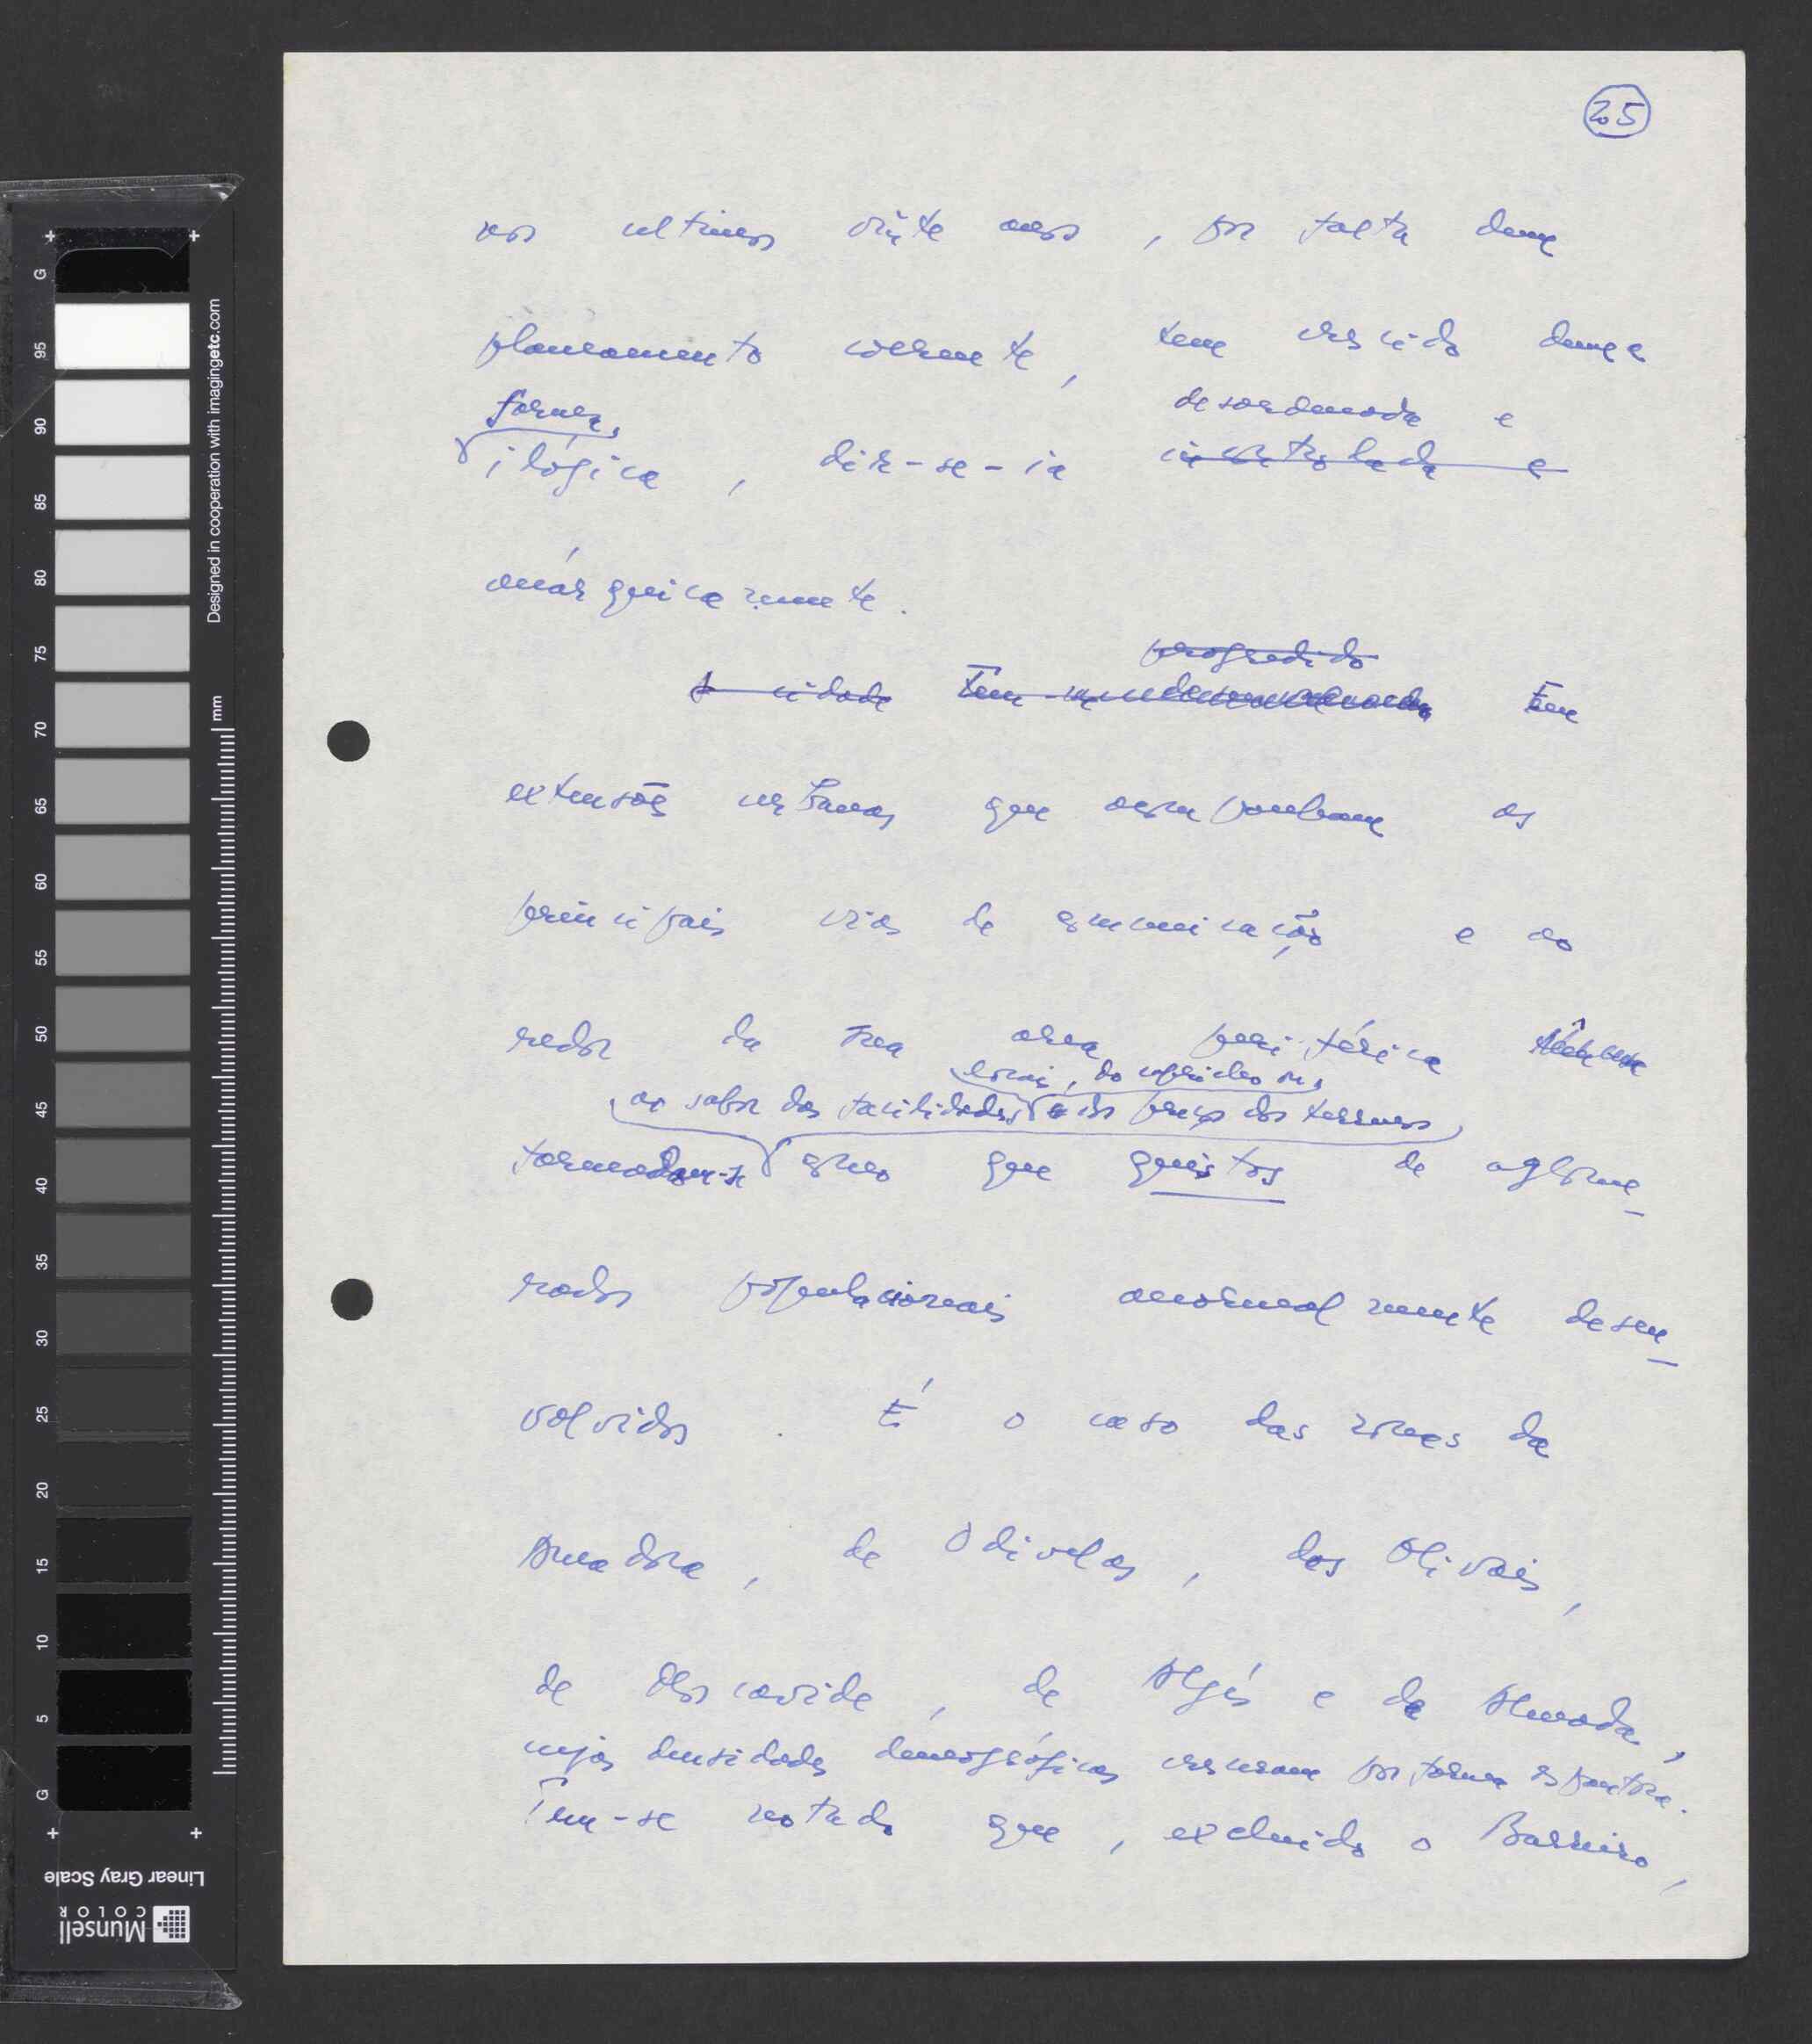 25
nos ultimos vinte anos, por falta dum
planeamento coerente, tem crescido duma
forma,
desordenada e
ilógica, dir-se-ia incontrolada e
anárquicamente.
progredido
A cidade Tem Tem
extensões urbanas que acompanham as
principais vias de comunicação e ao
redor da sua area periférica
locais, do capricho ou
ao sabor das facilidades, e do preço dos terrenos
formaram-se como que quistos de aglome-
rados populacionais anormalmente desen-
volvidos. É o caso das zonas da
Amadora, de Odivelas, dos Olivais,
de Moscavide, de Algés e da Almada,
cujas densidades demográficas cresceram por forma espantosa.
Tem-se notado que, excluido o Barreiro,
G 95 90 85 80 75 70 65 60 55 50 45 40 35 30 25 20 15 10 5 G
mm
Designed in cooperation with imagingetc.com
Linear Gray Scale
Munsell
COLOR